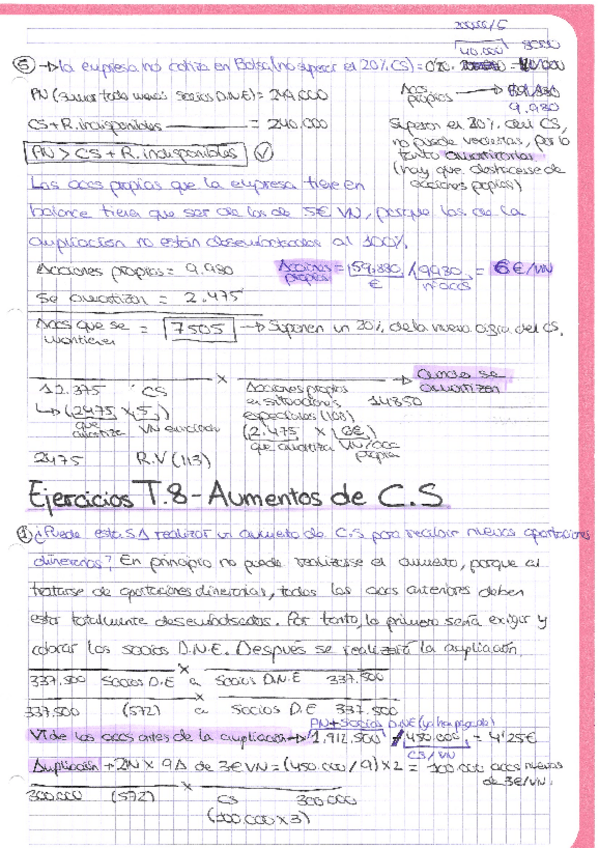 200000/5
40.000 8000
⑤ → La empresa no cotiza en Bolsa (no superar el 20% CS) = 0'20. = 40.000
PN (sumar todo menos socios D.N.E) = 249.000
Accs propias → 59.880
9.980
CS + R. indisponibles = 240.000
Superan el 20% del CS, no puede venderlas, por lo tanto amortizarlas (hay que deshacerse de acciones propias)
PN > CS + R. indisponibles ✓
Las accs propias que la empresa tiene en
balance tiene que ser de las de 5€ VN, porque las de la
ampliación no están desembolsadas al 100%.
Acciones propias = 9.980
Acciones propias = 59.880 € / 9980 nº accs = 6€/VN
Se amortizan = 2.475
Accs que se mantienen = 7505 → Suponen un 20% de la nueva cifra del CS.
x → cuando se amortizan
12.375 CS
Acciones propias en situaciones especiales (108) 14850
↳ (2475 x 5)
que amortiza VN
(2.475 x 6€)
que amortiza VN/acc propia
2475 R.V (113)
Ejercicios T.8 - Aumentos de C.S.
① ¿Puede esta SA realizar un aumento de C.S para recibir nuevas aportaciones
dinerarias? En principio no puede realizarse el aumento, porque al
tratarse de aportaciones dinerarias, todas las accs anteriores deben
estar totalmente desembolsadas. Por tanto, lo primero sería exigir y
cobrar los socios D.N.E. Después se realizará la ampliación.
x
337.500 Socios D.E a Socios D.N.E 337.500
x
337.500 (572) a Socios D.E 337.500
PN + Socios D.NE (ya han pagado)
V de las accs antes de la ampliación → 1.912.500 / 450.000 = 4'25€
CS / VN
Ampliación → 2N x 9A de 3€ VN = (450.000 / 9) x 2 = 100.000 accs nuevas
de 3€/VN.
x
300.000 (572) a CS 300.000
(100.000 x 3)